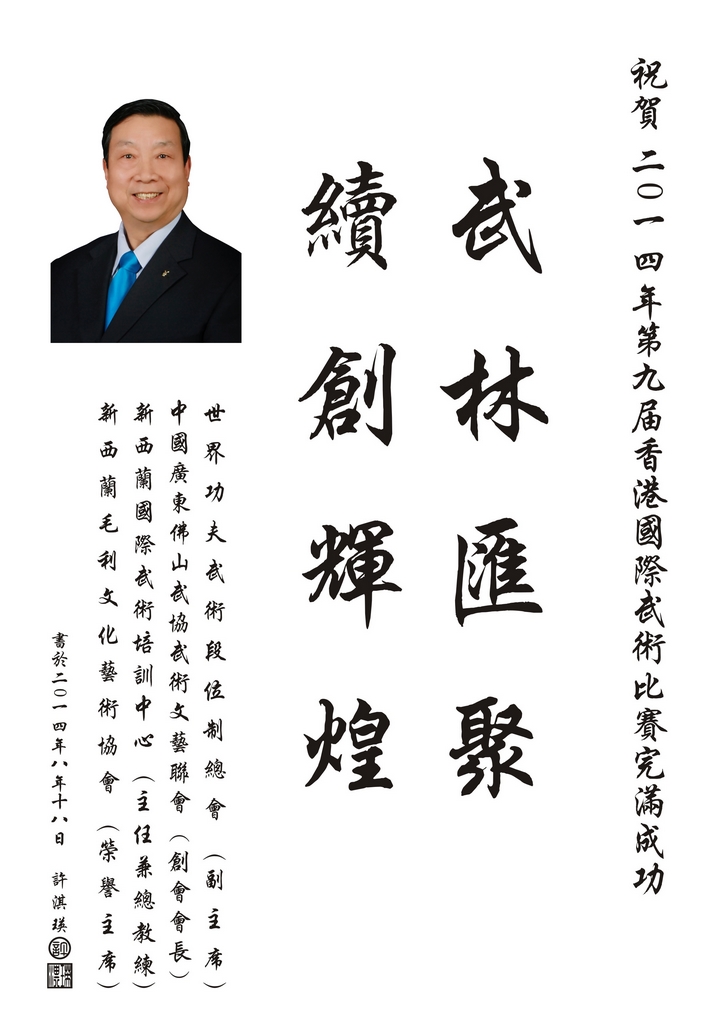 祝賀 二〇一四年第九屆香港國際武術比賽完滿成功
武林匯聚
續創輝煌
世界功夫武術段位制總會（副主席）
中國廣東佛山武協武術文藝聯會（創會會長）
新西蘭國際武術培訓中心（主任兼總教練）
新西蘭毛利文化藝術協會（榮譽主席）
書於二〇一四年八年十八日 許淇瑛